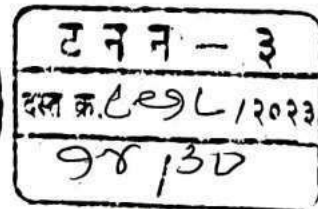 ट न न - ३
दस्त क्र. ८७१८ /२०२३
१४ /३०